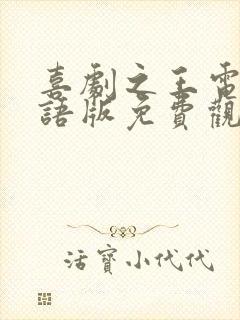 喜劇之王電
語版免費觀
活寶小代代